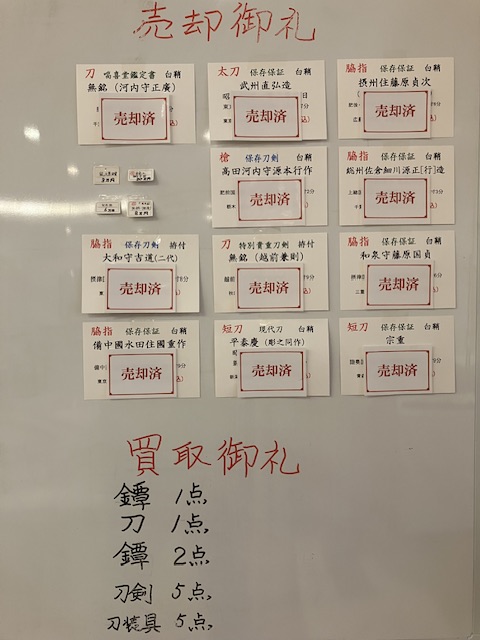 売却御礼
刀 鳴喜堂鑑定書 白鞘
無銘(河内守正廣)
売却済
太刀 保存保証 白鞘
武州直弘造
売却済
脇指 保存保証 白鞘
摂州住藤原貞次
売却済
槍 保存刀剣 白鞘
高田河内守源本行作
売却済
脇指 保存保証 白鞘
総州佐倉細川源正[行]造
売却済
脇指 保存刀剣 拵付
大和守吉道(二代)
売却済
刀 特別貴重刀剣 拵付
無銘(越前兼則)
売却済
脇指 保存保証 白鞘
和泉守藤原国貞
売却済
脇指 保存保証 白鞘
備中國水田住國重作
売却済
短刀 現代刀 白鞘
平泰慶(彫之同作)
売却済
短刀 保存保証 白鞘
宗重
売却済
買取御礼
鐔 1点
刀 1点
鐔 2点
刀剣 5点
刀装具 5点